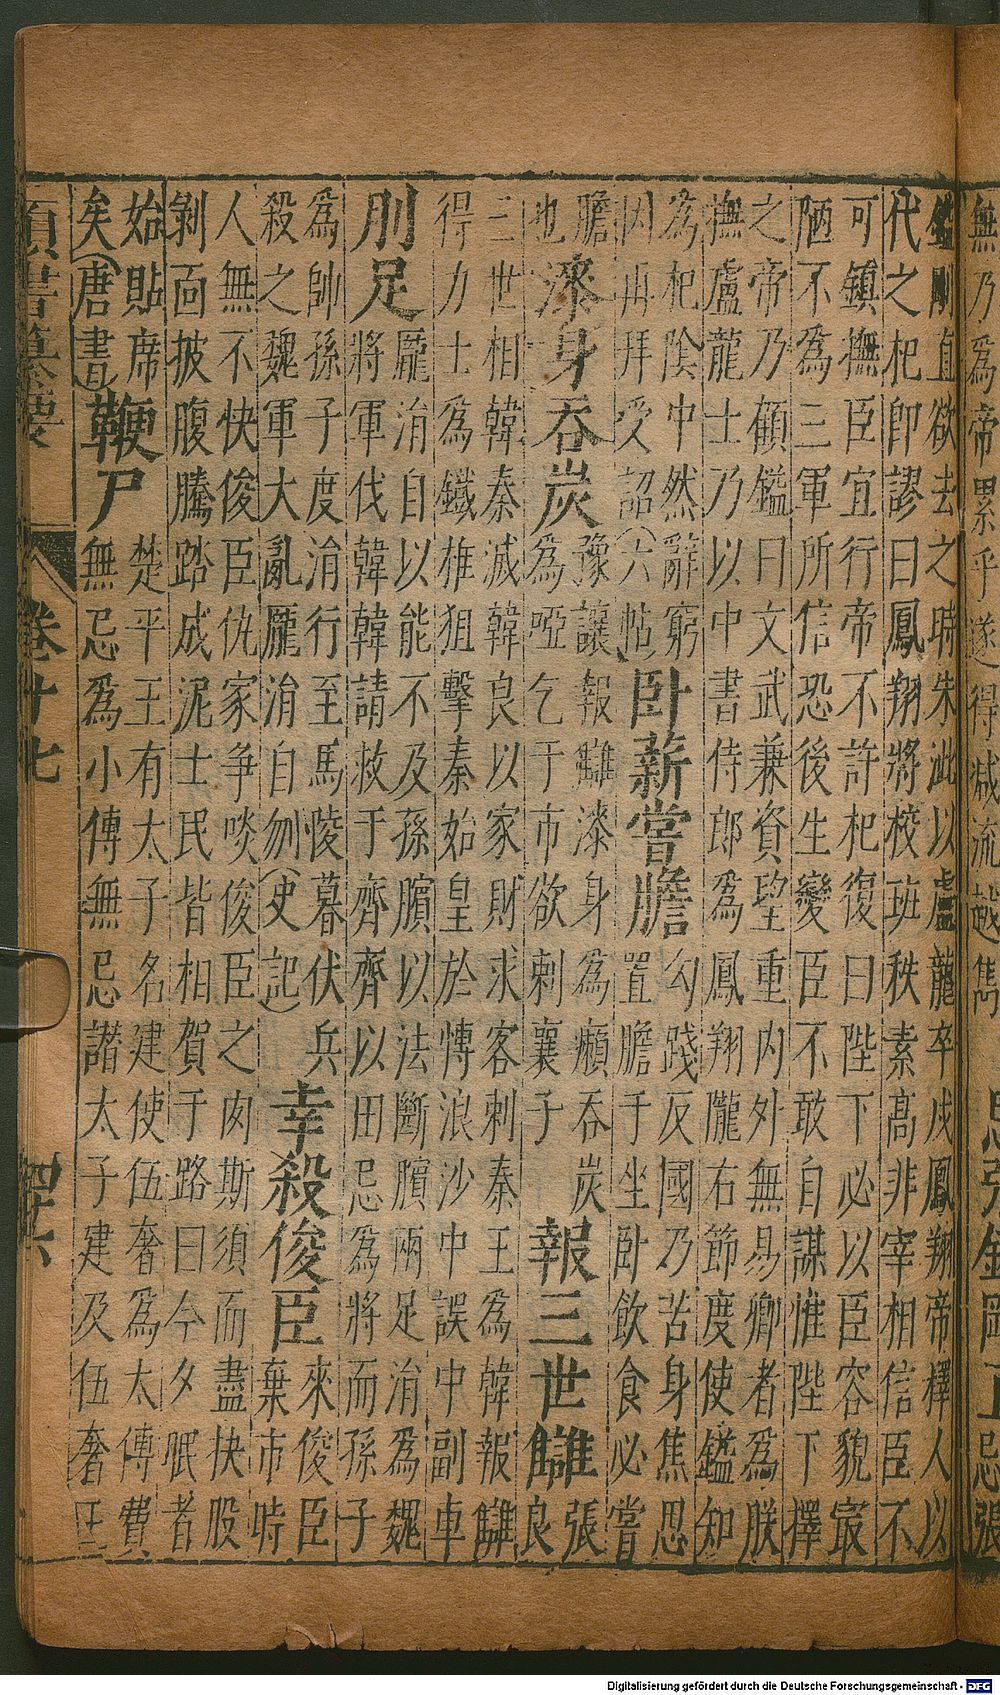 無乃為帝累乎遂得減流越雋
忌張鎰剛直
忌張
鎰剛直欲去之時朱泚以盧龍卒戍鳳翔帝擇人以
代之杞即謬曰鳳翔將校班秩素髙非宰相信臣不
可鎮撫臣宜行帝不許杞復曰陛下必以臣容貌寢
陋不為三軍所信恐後生變臣不敢自謀惟陛下擇
之帝乃顧鎰曰文武兼資望重內外無易卿者為朕
撫盧龍士乃以中書侍郎為鳳翔隴右節度使鎰知
為杞陰中然辭窮
因再拜受詔(六帖)
卧薪嘗膽
勾踐反國乃苦身焦思
置膽于坐卧飲食必嘗
膽
也
漆身吞炭
豫讓報讎漆身為癩吞炭
為啞乞于市欲刺襄子
報三世讎
張
良
三世相韓秦滅韓良以家財求客刺秦王為韓報讎
得力士為鐵椎狙擊秦始皇於博浪沙中誤中副車
刖足
龐涓自以能不及孫臏以法斷臏兩足涓為魏
將軍伐韓韓請救于齊齊以田忌為將而孫子
為帥孫子度涓行至馬陵暮伏兵
殺之魏軍大亂龐涓自刎(史記)
幸殺俊臣
來俊臣
棄市時
人無不快俊臣仇家爭啖俊臣之肉斯須而盡抉股
剝面披腹騰踏成泥士民皆相賀于路曰今夕眠者
始貼席
矣(唐書)
鞭尸
楚平王有太子名建使伍奢為太傅費
無忌為小傅無忌譖太子建及伍奢王
類書纂要
卷十七
四六
Digitalisierung gefördert durch die Deutsche Forschungsgemeinschaft - DFG